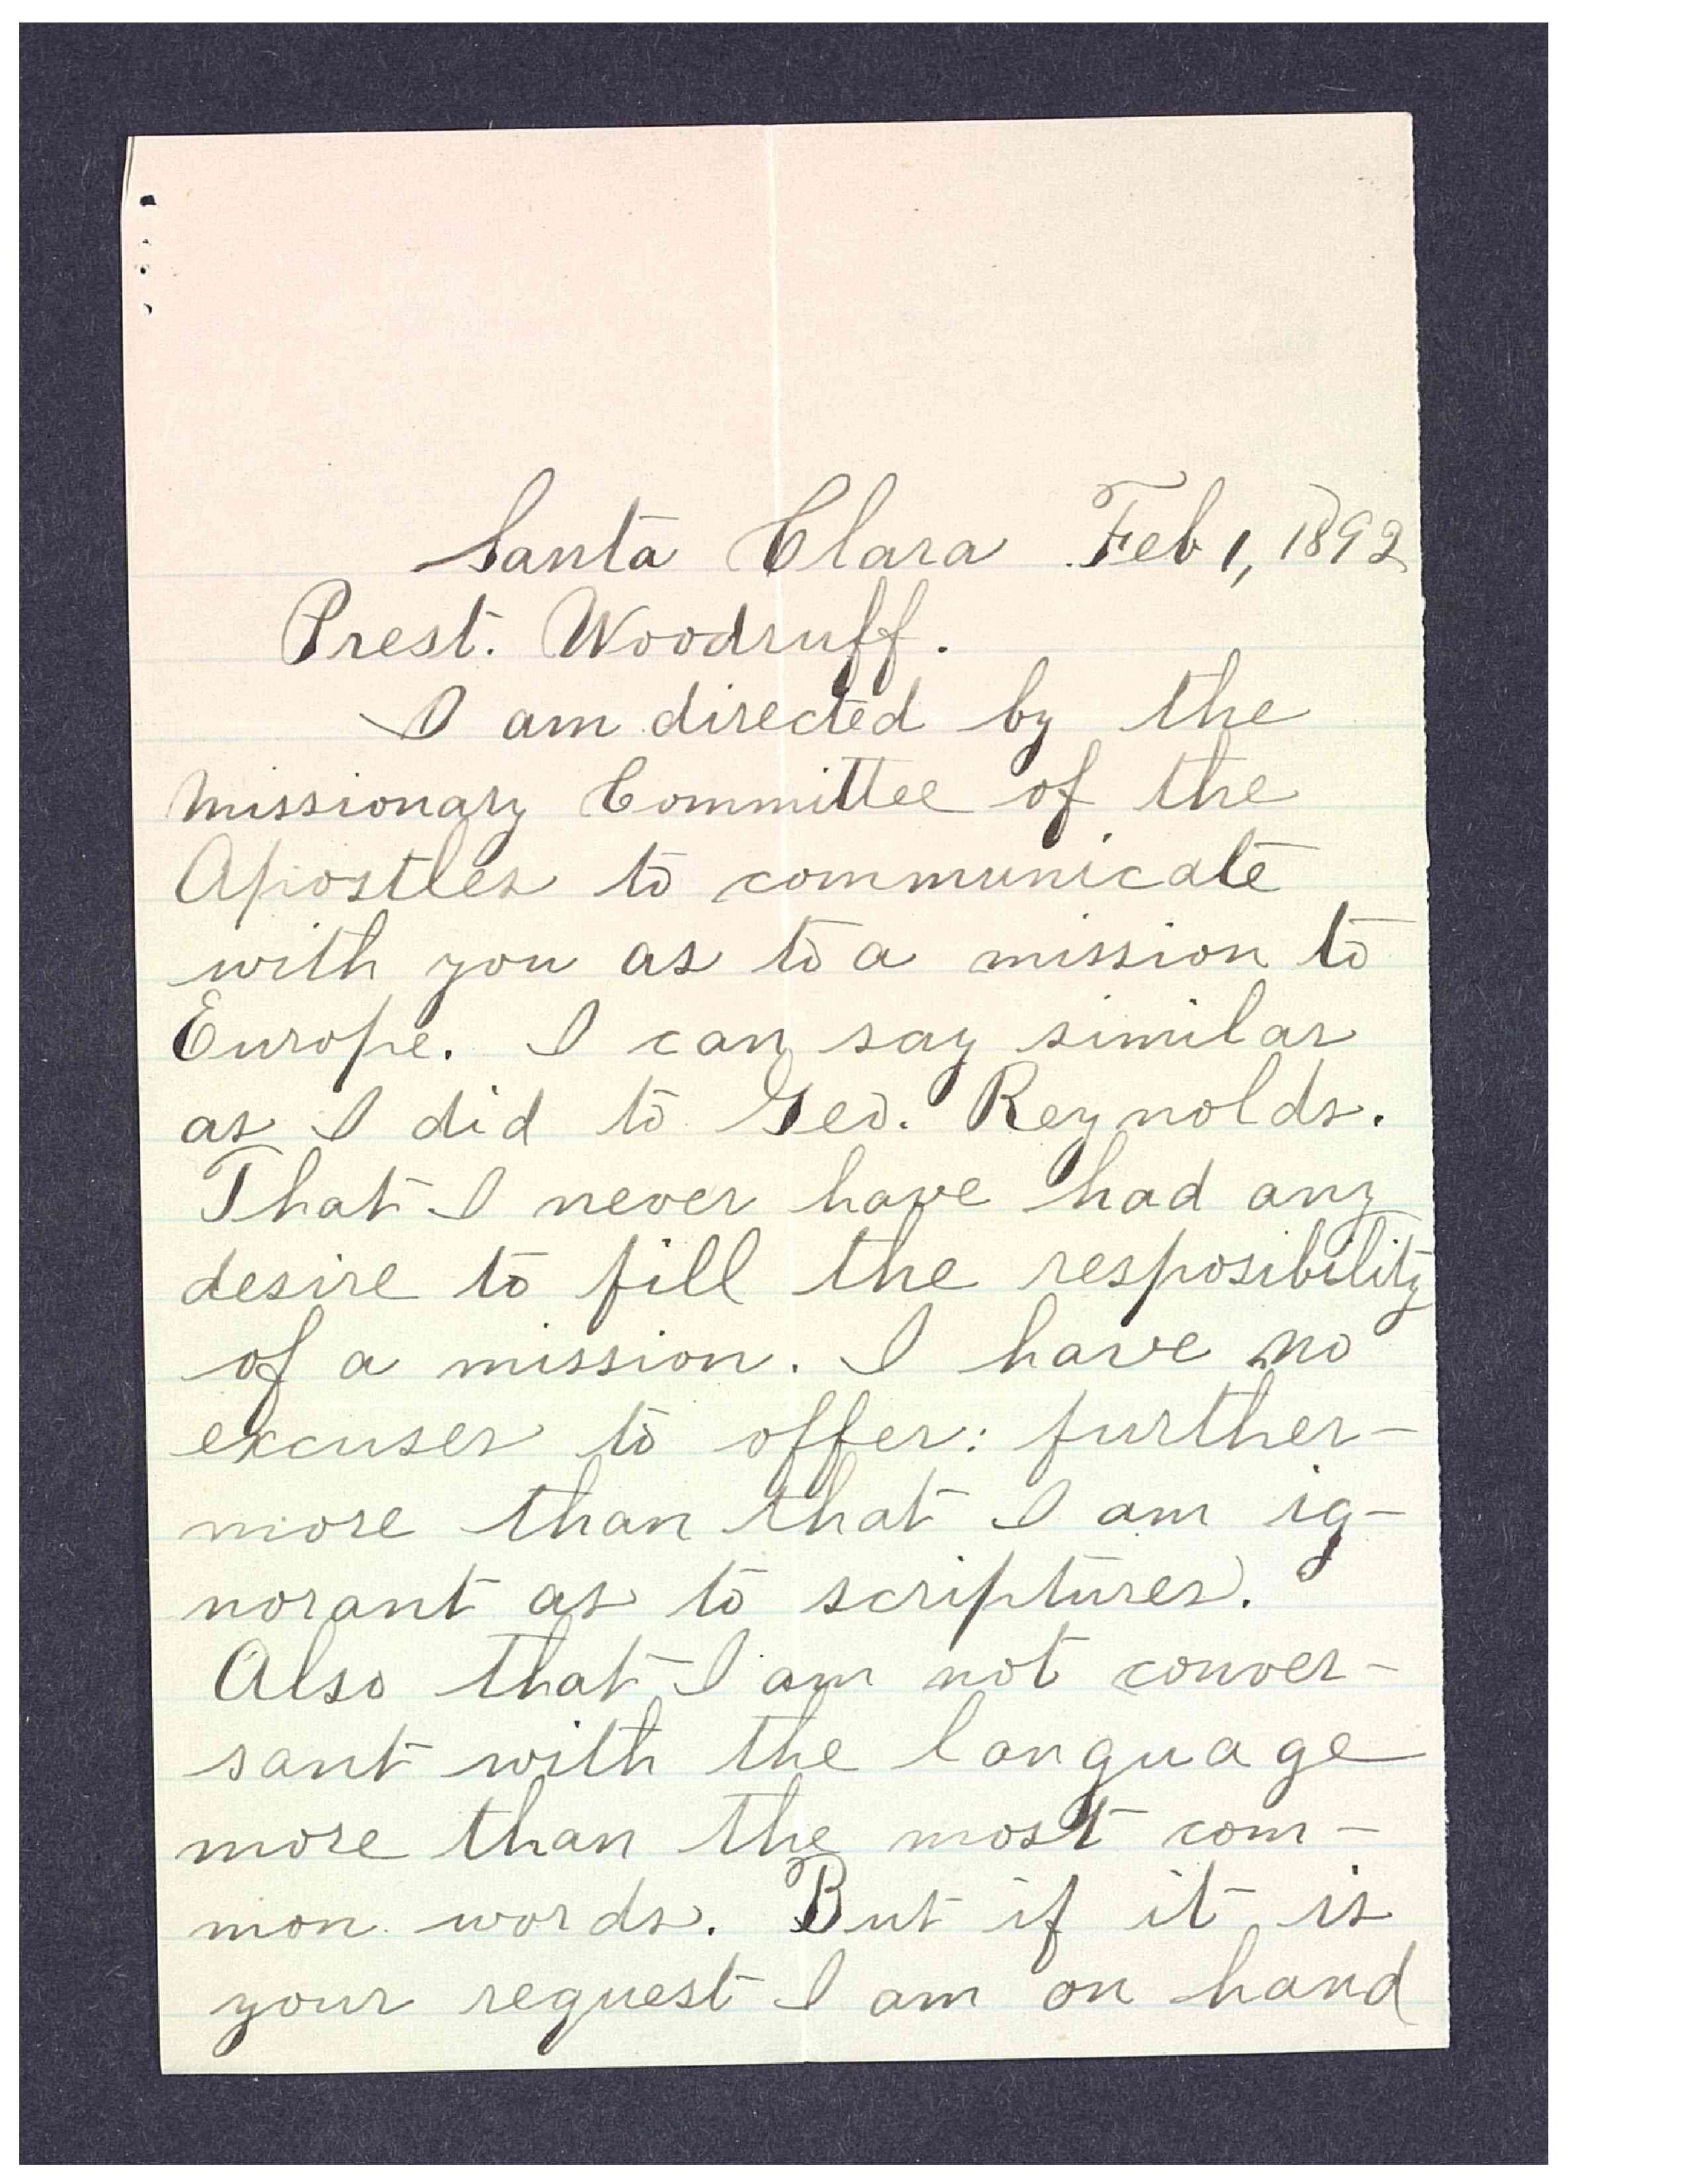 Santa Clara Feb 1, 1892
Prest. Woodruff.
I am directed by the
missionary Committee of the
Apostles to communicate
with you as to a mission to
Europe. I can say similar
as I did to Geo. Reynolds.
That I never have had any
desire to fill the resposibility
of a mission. I have no
excuses to offer: further-
more than that I am ig-
norant as to scriptures.
Also that I am not conver-
sant with the language
more than the most com-
mon words. But if it is
your request I am on hand